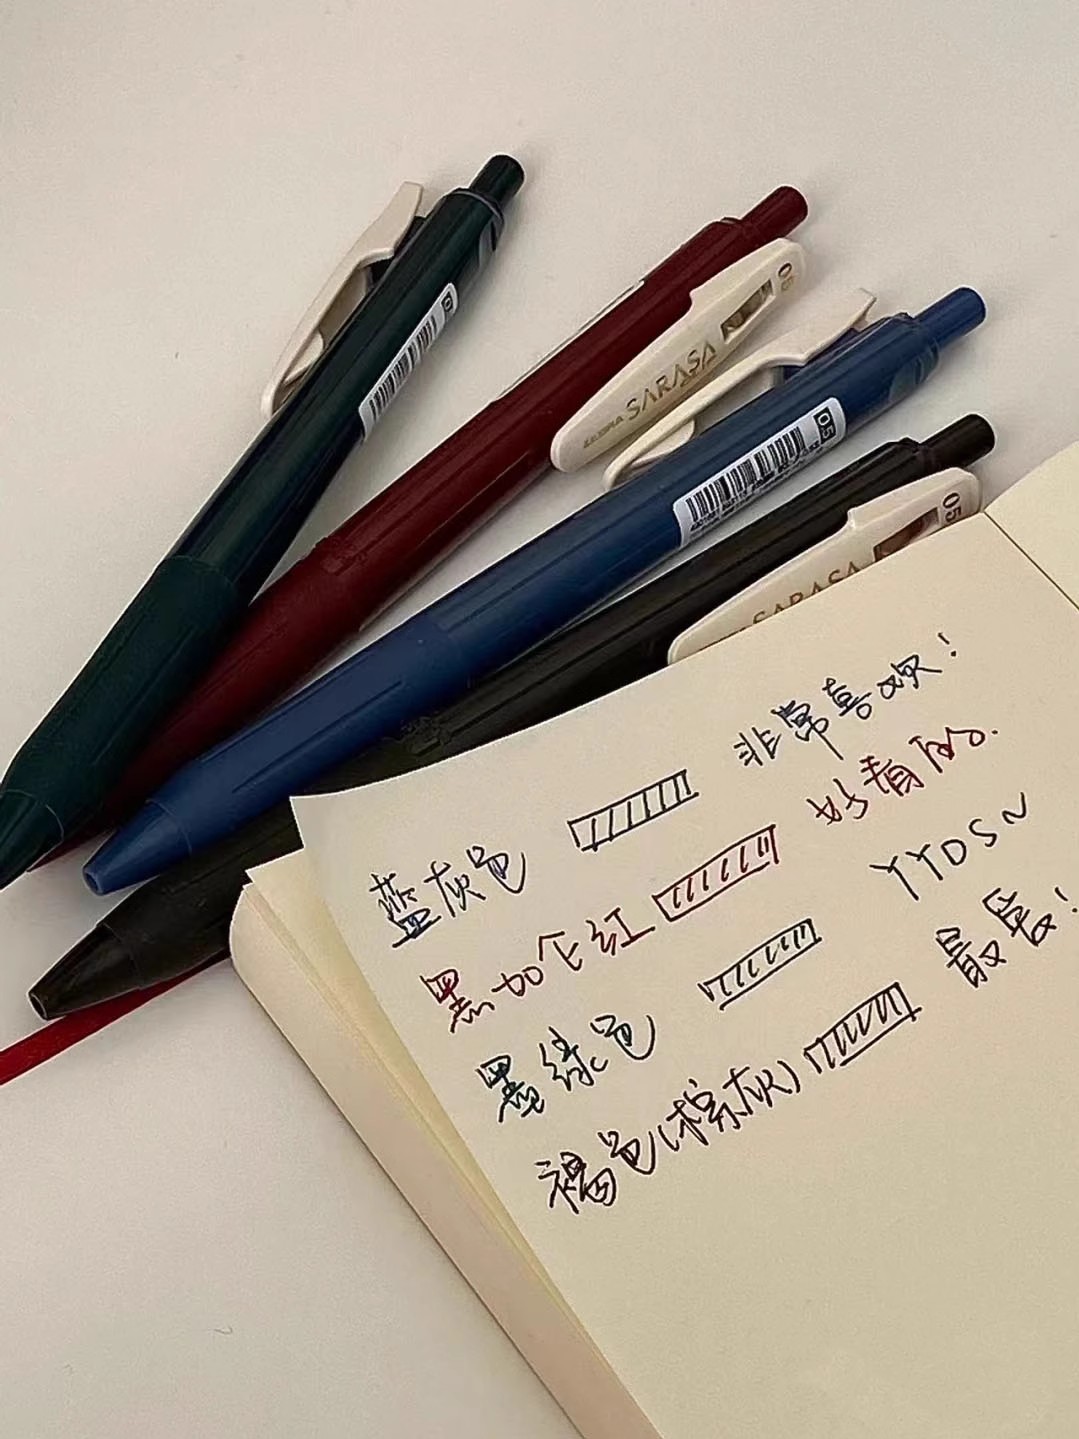 0.5
05
ZEBRA SARASA
0.5
05
SARASA
非常喜欢！
蓝灰色
好看的.
黑加仑红
YYDS~
墨绿色
最长！
褐色(棕灰)